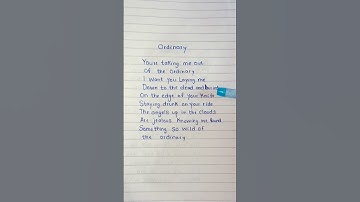 Ordinary
You're taking me out
Of the ordinary
I want you laying me
Down to the dead and
On the edge of your knife
Staying drunk on your vide
The angels up in the clouds
Are jealous knowing we found
Something so wild of
the ordinary